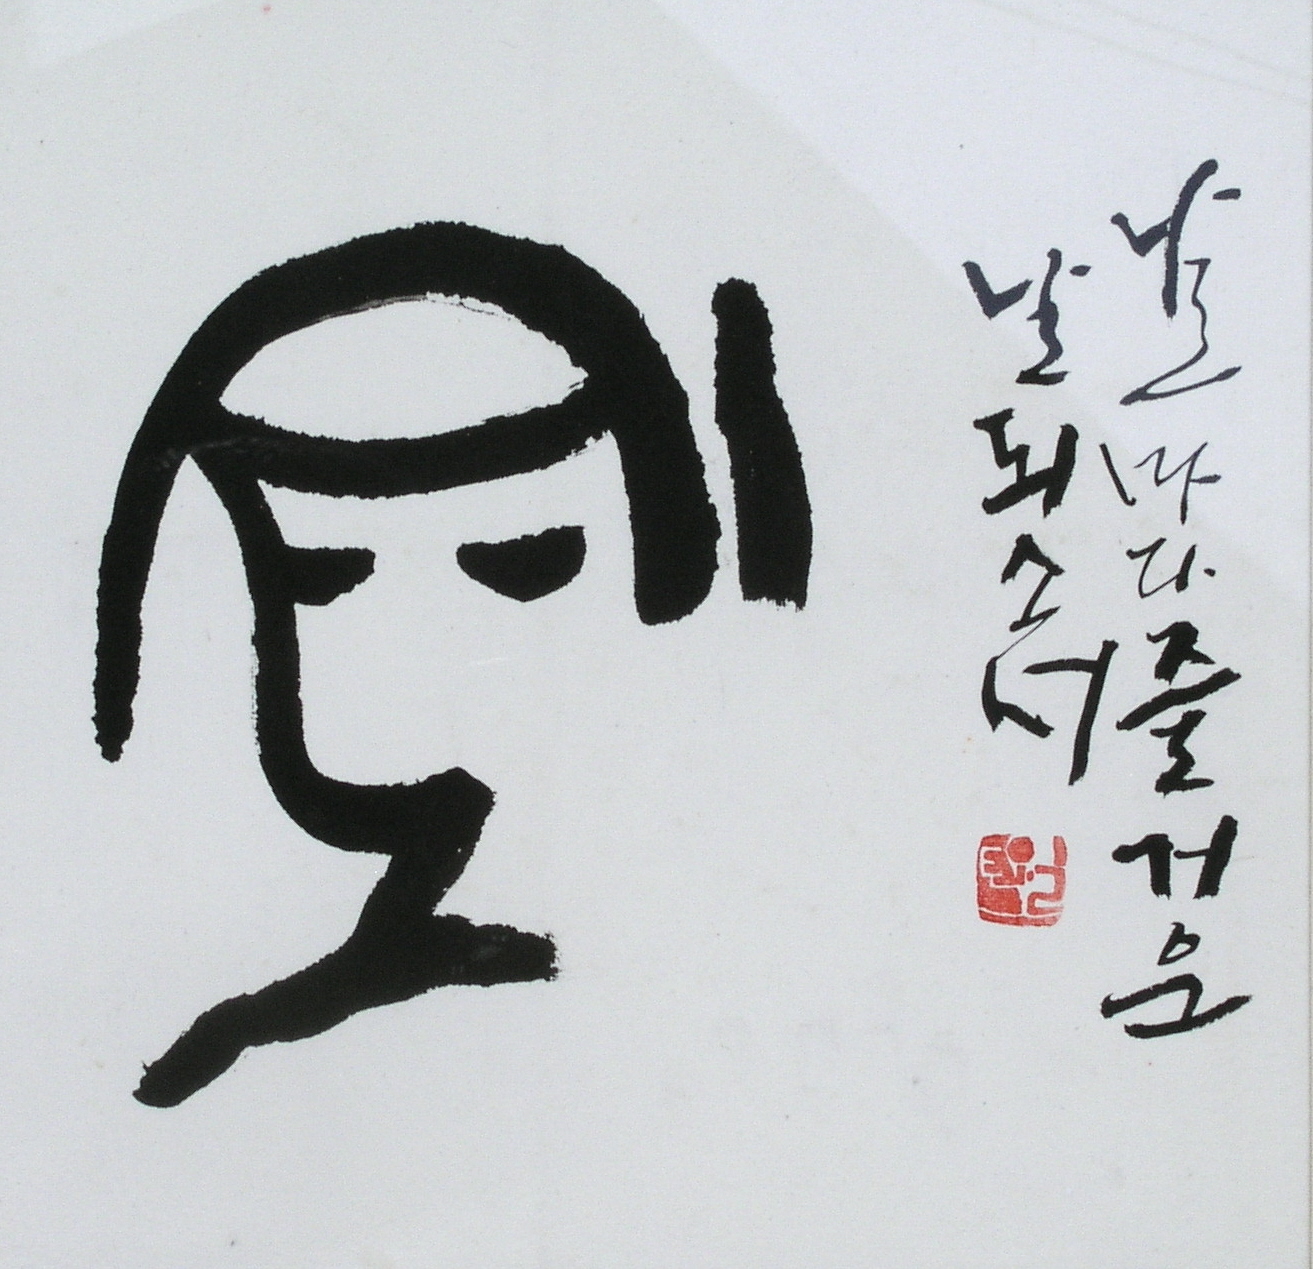 날마다 즐거운
날 되소서